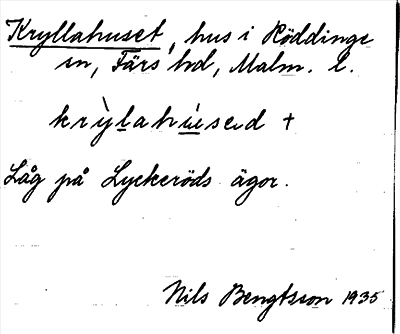 Kryllahuset, hus i Röddinge
sn, Färs hd, Malm. l.
krỳlahúsed +
Låg på Lyckeröds ägor.
Nils Bengtsson 1935